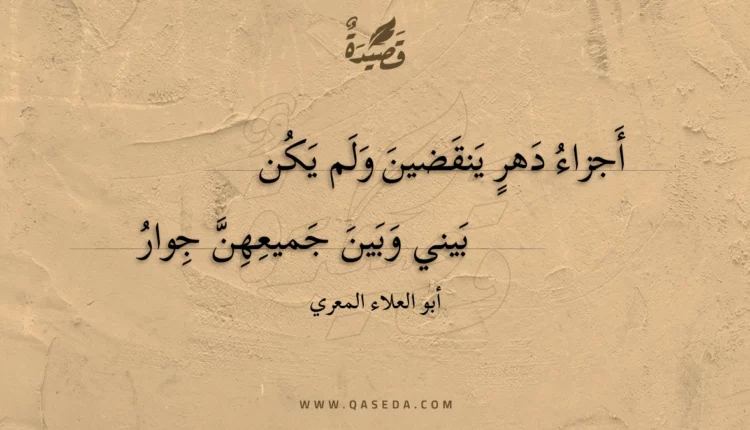 قَصِيدَةٌ
أَجزاءُ دَهرٍ يَنقَضينَ وَلَم يَكُن
بَيني وَبَينَ جَميعِهِنَّ جِوارُ
أبو العلاء المعري
WWW.QASEDA.COM